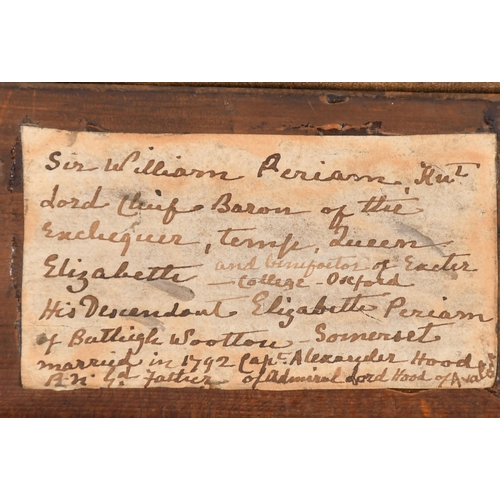 Sir William Periam, Knt
Lord Chief Baron of the
Exchequer, temp. Queen
Elizabeth and Benefactor of Exeter
College Oxford
His Descendant Elizabeth Periam
of Butleigh Wootton Somerset
married in 1792 Capt. Alexander Hood
R.N. Gt Father of Admiral Lord Hood of Avalon